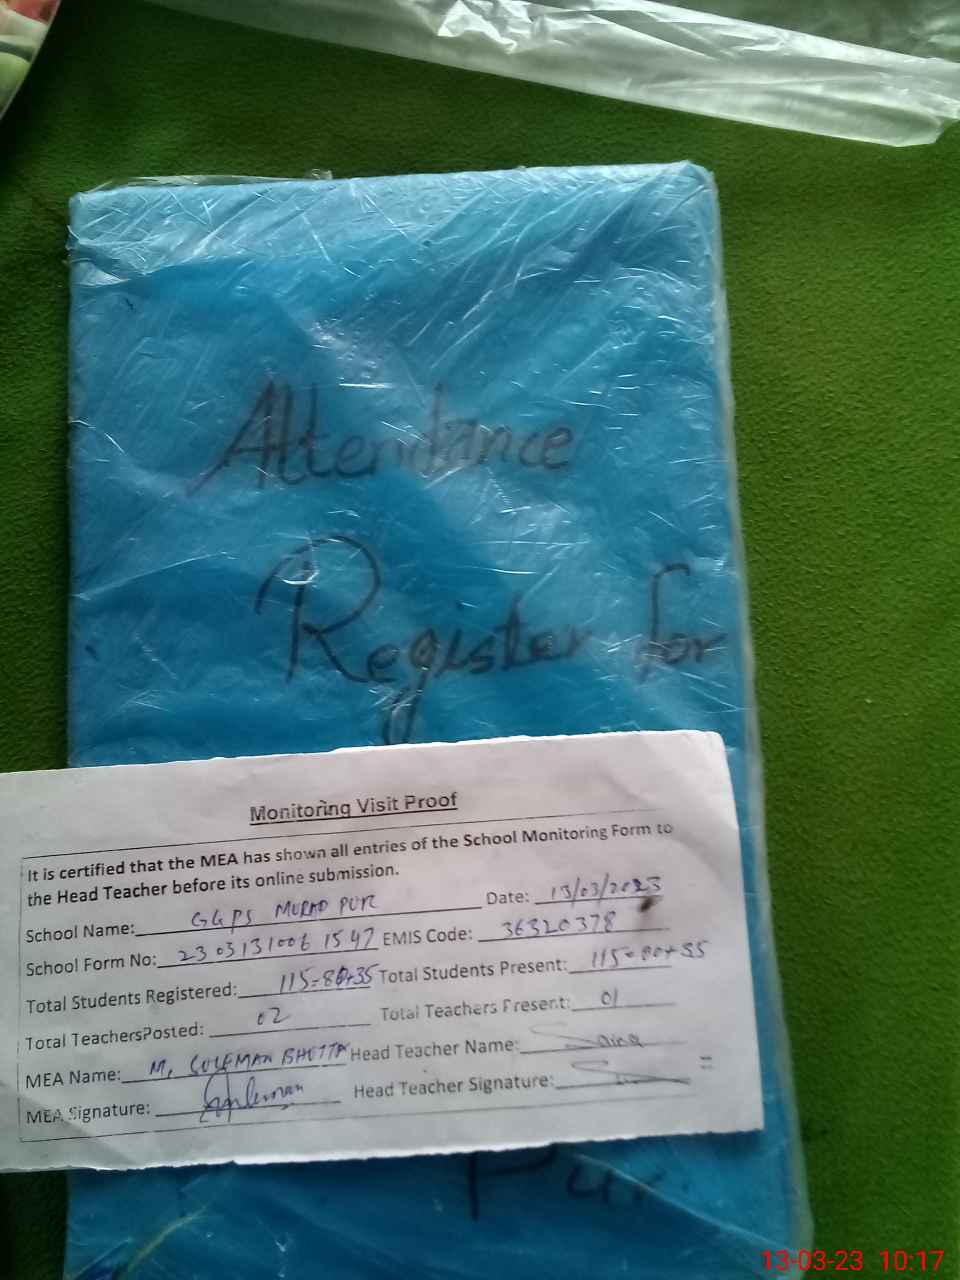 Attendance
Register for
Monitoring Visit Proof
It is certified that the MEA has shown all entries of the School Monitoring Form to
the Head Teacher before its online submission.
School Name: GGPS MURAD PUR Date: 13/03/2023
School Form No: 2303131006 1547 EMIS Code: 36320378
Total Students Registered: 115=80+35 Total Students Present: 115=80+35
Total TeachersPosted: 02 Total Teachers Present: 01
MEA Name: M. SULEMAN BHUTTA Head Teacher Name: Saina
MEA Signature: Head Teacher Signature:
Pur
13-03-23 10:17